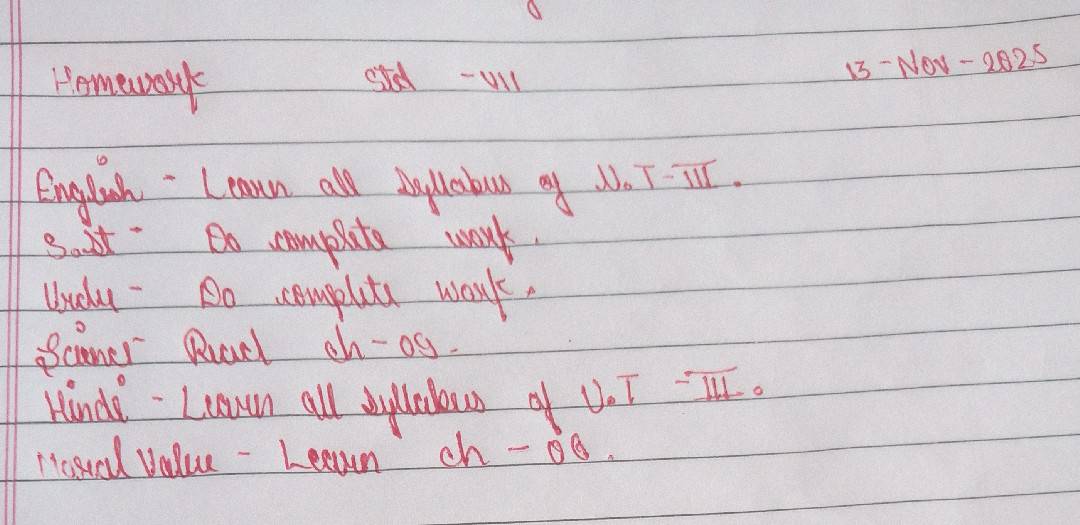 Homework Std -VII 13-Nov-2025
English - Learn all syllabus of U.T-III.
S.St - Do complete work.
Urdu - Do complete work.
Science - Read ch-09.
Hindi - Learn all syllabus of U.T -III.
Moral Value - Learn ch -